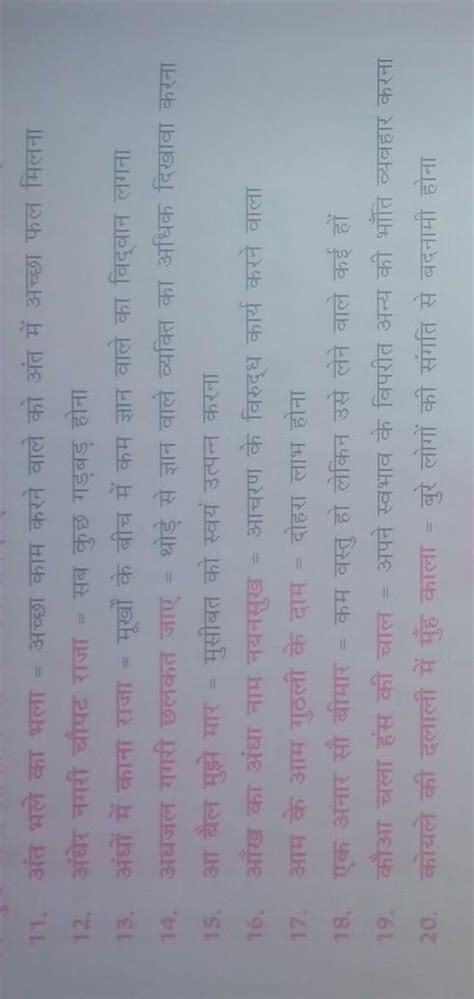 11. अंत भले का भला = अच्छा काम करने वाले को अंत में अच्छा फल मिलना
12. अंधेर नगरी चौपट राजा = सब कुछ गड़बड़ होना
13. अंधों में काना राजा = मूर्खों के बीच में कम ज्ञान वाले का विद्वान लगना
14. अधजल गगरी छलकत जाए = थोड़े से ज्ञान वाले व्यक्ति का अधिक दिखावा करना
15. आ बैल मुझे मार = मुसीबत को स्वयं उत्पन्न करना
16. आँख का अंधा नाम नयनसुख = आचरण के विरुद्ध कार्य करने वाला
17. आम के आम गुठली के दाम = दोहरा लाभ होना
18. एक अनार सौ बीमार = कम वस्तु हो लेकिन उसे लेने वाले कई हों
19. कौआ चला हंस की चाल = अपने स्वभाव के विपरीत अन्य की भाँति व्यवहार करना
20. कोयले की दलाली में मुँह काला = बुरे लोगों की संगति से बदनामी होना